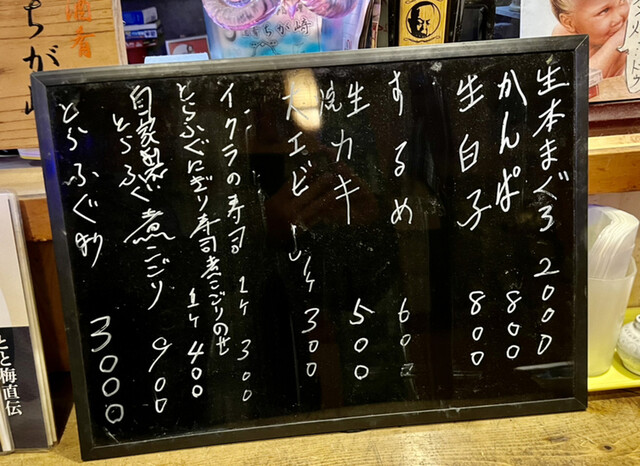 生本まぐろ 2000
かんぱち 800
生白子 800
するめ 600
生カキ 500
焼
大エビ 1ヶ 300
イクラの寿司 1ヶ 300
とらふぐにぎり寿司煮こごりのせ 1ヶ 400
自家製とらふぐ煮こごり 900
とらふぐ 3000
酒肴
ちが崎
ちが崎
とと梅直伝